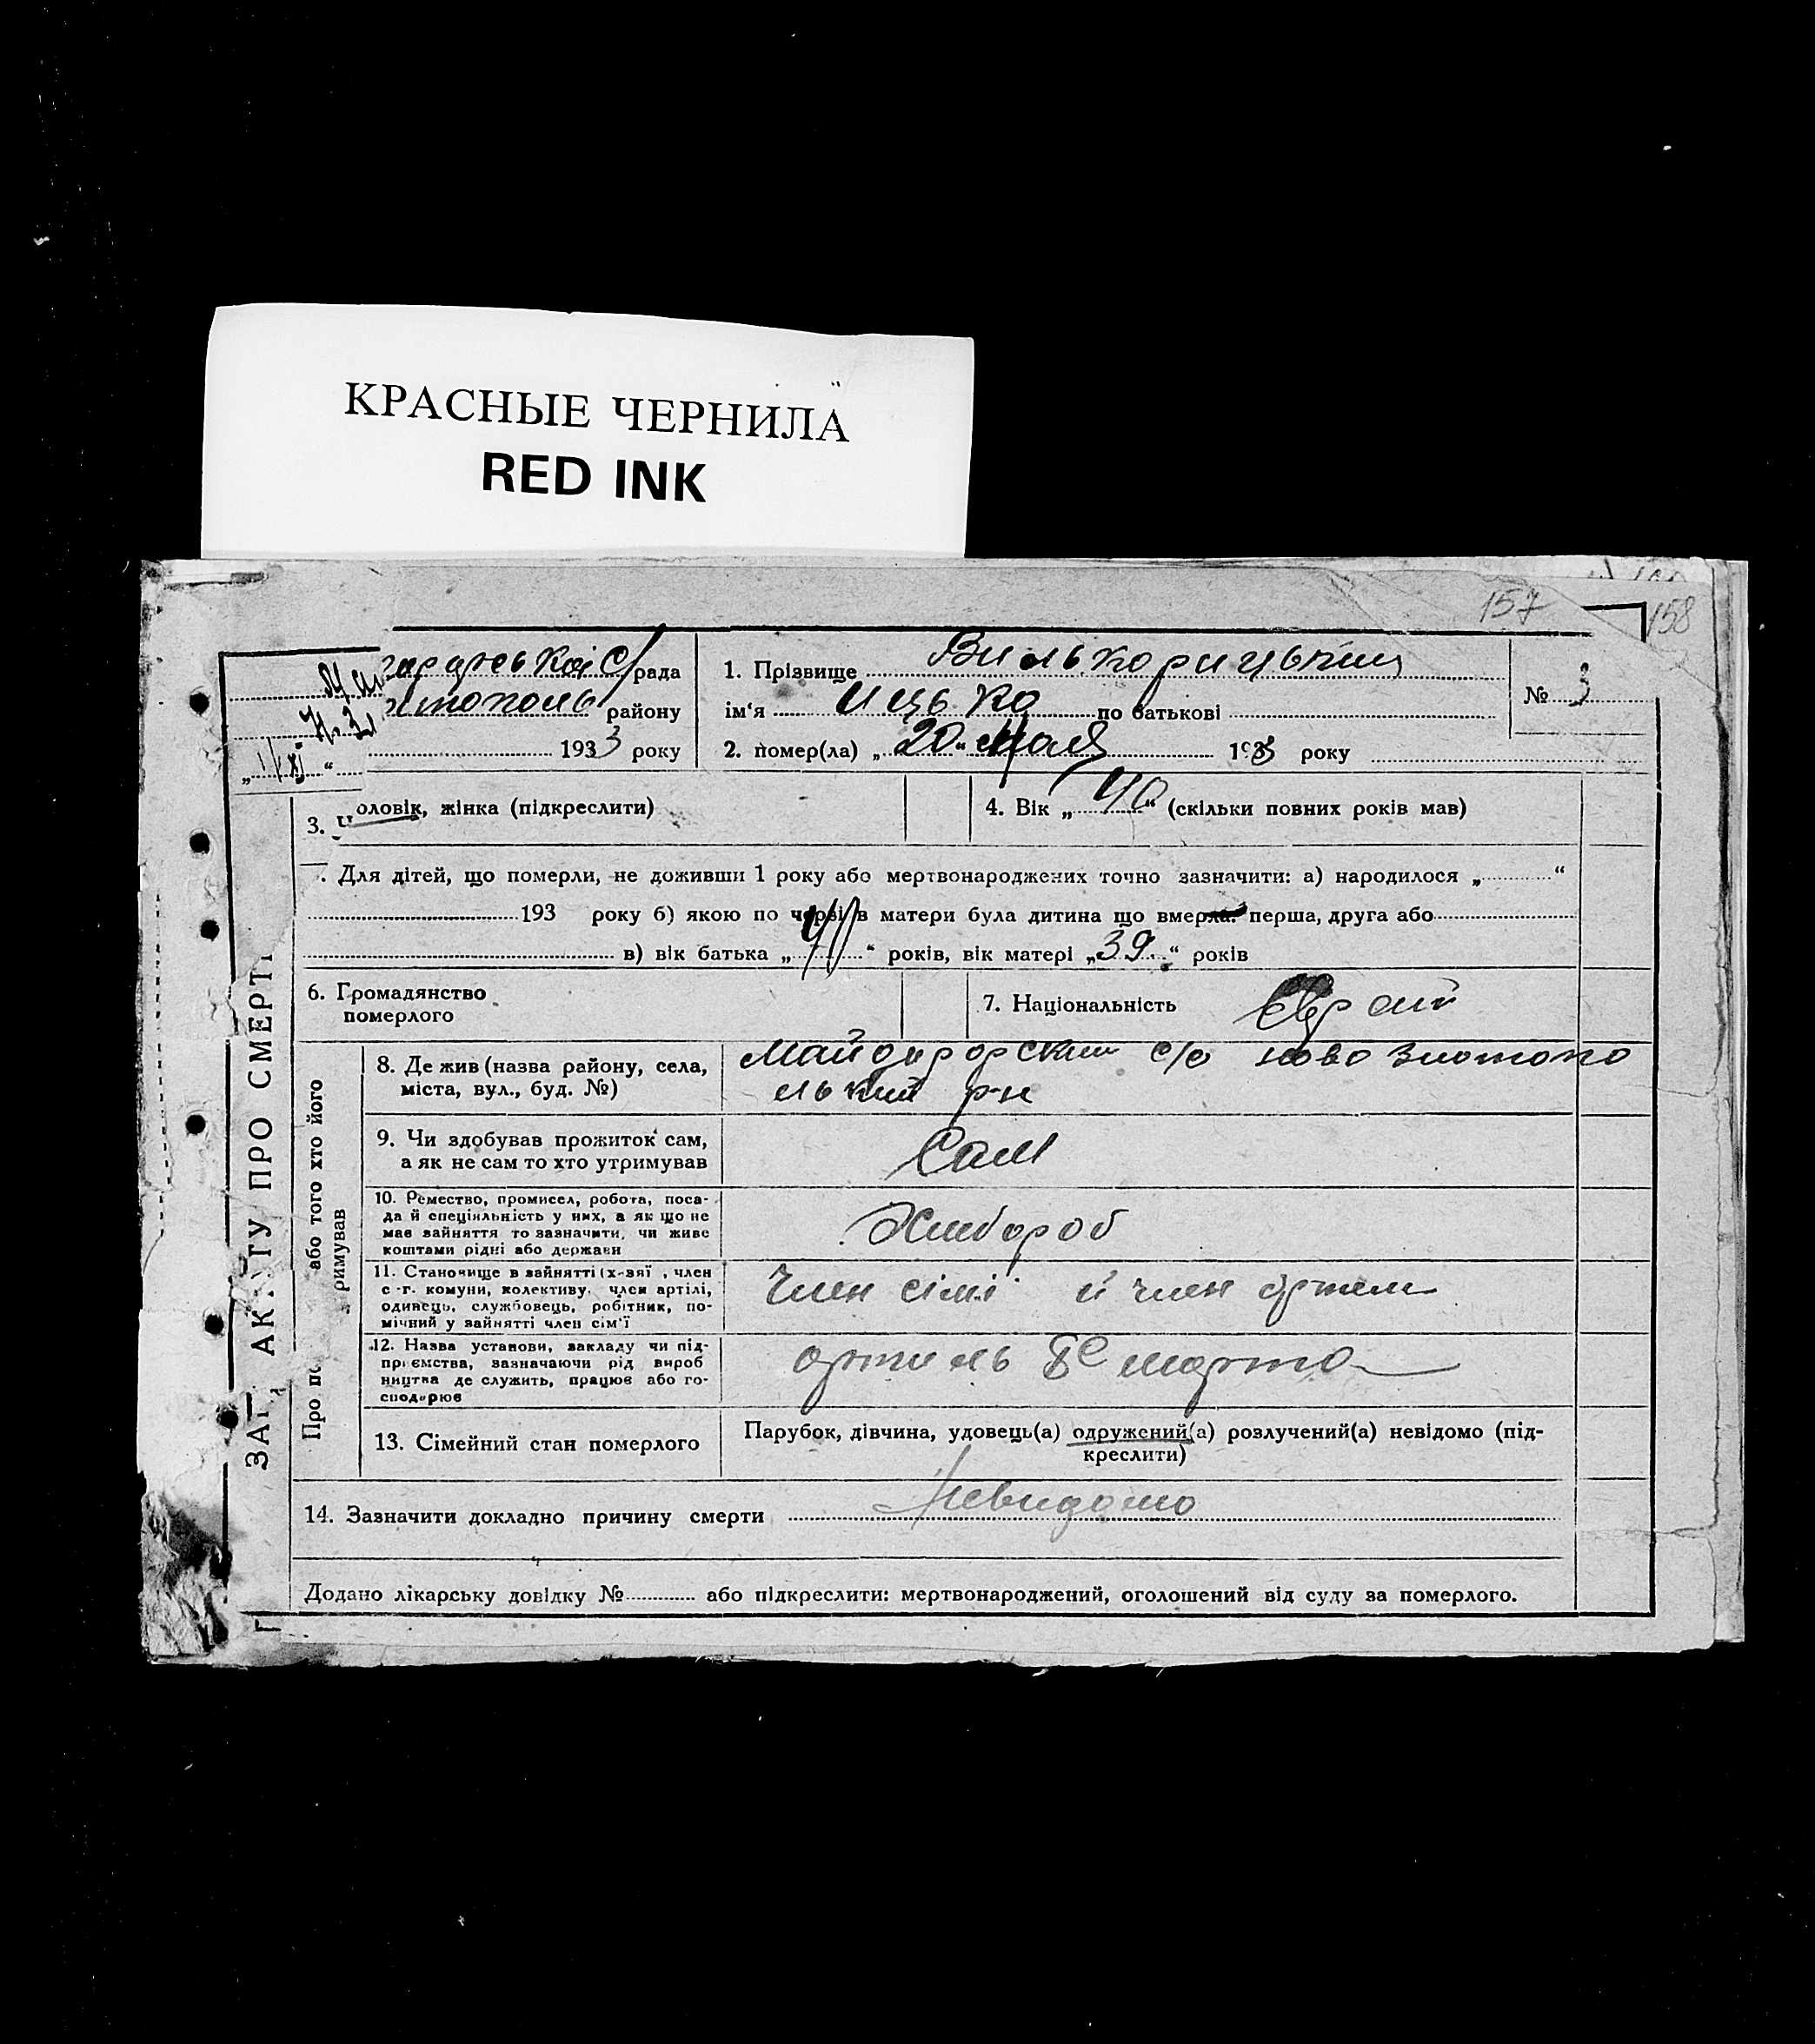 КРАСНЫЕ ЧЕРНИЛА
RED INK
157
158
рада
району
193 3 року
1. Прізвище Вилькорицький
ім'я Ицько по батькові
2. помер(ла) „20" Мая 1933 року
№ 3
3. Чоловік, жінка (підкреслити)
4. Вік „40" (скільки повних років мав)
Для дітей, що померли, не доживши 1 року або мертвонароджених точно зазначити: а) народилося „ "
193 року б) якою по черзі в матери була дитина що вмерла: перша, друга або
в) вік батька „ " років, вік матері „39" років
6. Громадянство
померлого
7. Національність Єврей
ЗАП АКТУ ПРО СМЕРТЬ
Про по або того хто його
римував
8. Де жив (назва району, села,
міста, вул., буд. №)
Майдорорский с/с ново Златопо
лький р-н
9. Чи здобував прожиток сам,
а як не сам то хто утримував
Сам
10. Ремество, промисел, робота, поса-
да й спеціяльність у них, а як що не
має зайняття то зазначити, чи живе
коштами рідні або держави
Хлибороб
11. Становище в зайнятті (х-зяї , член
с.-г. комуни, колективу, член артілі,
одинець, службовець, робітник, по-
мічний у зайнятті член сім'ї
Член сімі й член Ортели
12. Назва установи, закладу чи під-
приємства, зазначаючи рід вироб
ництва де служить, працює або го-
сподарює
ортиль 8е марта
13. Сімейний стан померлого
Парубок, дівчина, удовець(а) одружений(а) розлучений(а) невідомо (під-
креслити)
14. Зазначити докладно причину смерти Невидомо
Додано лікарську довідку № або підкреслити: мертвонароджений, оголошений від суду за померлого.